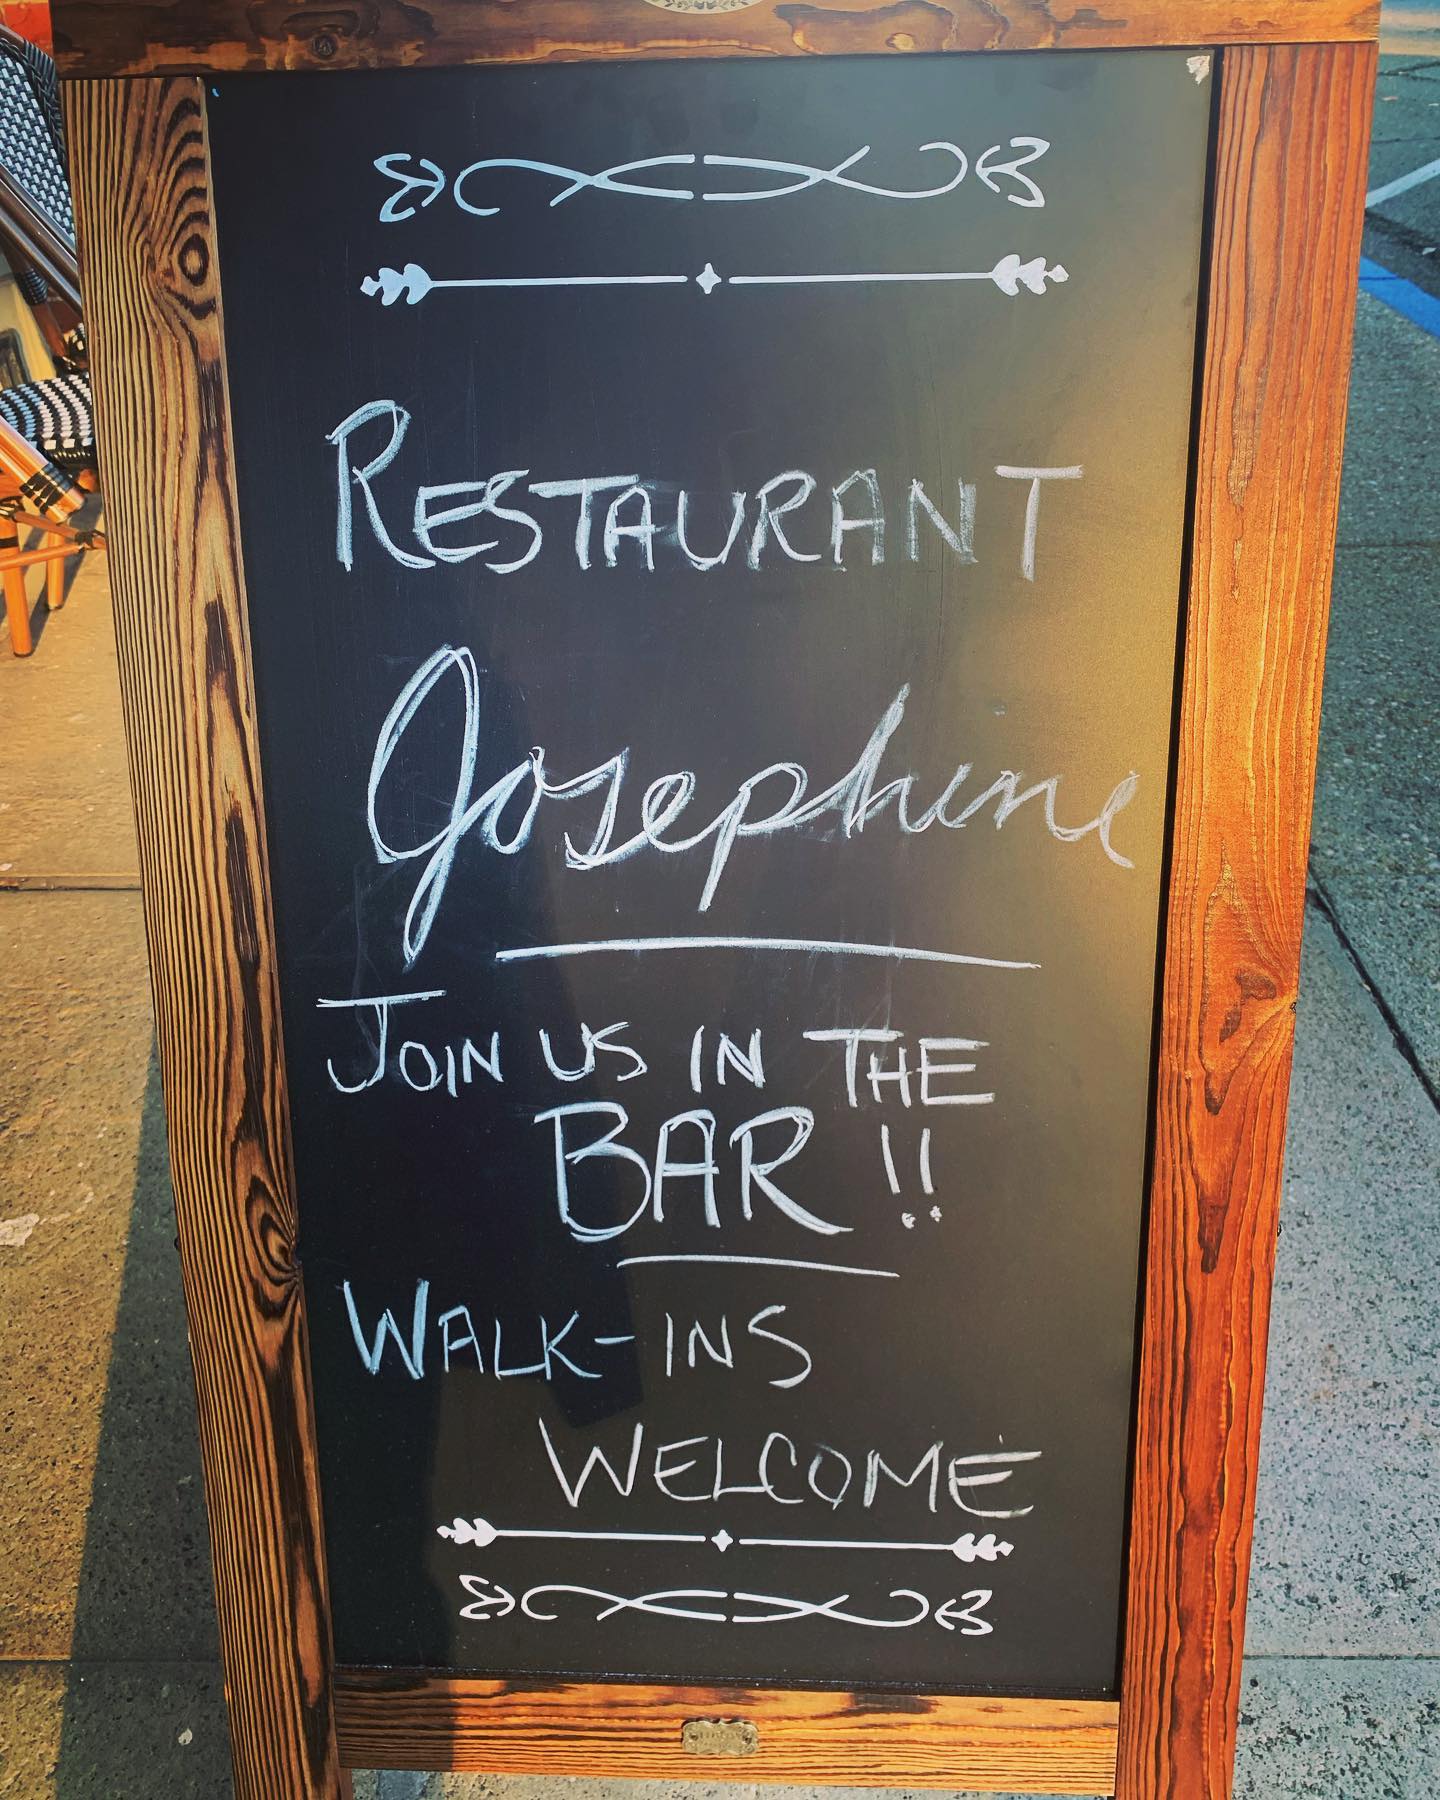 RESTAURANT
Josephine
JOIN US IN THE
BAR !!
WALK-INS
WELCOME